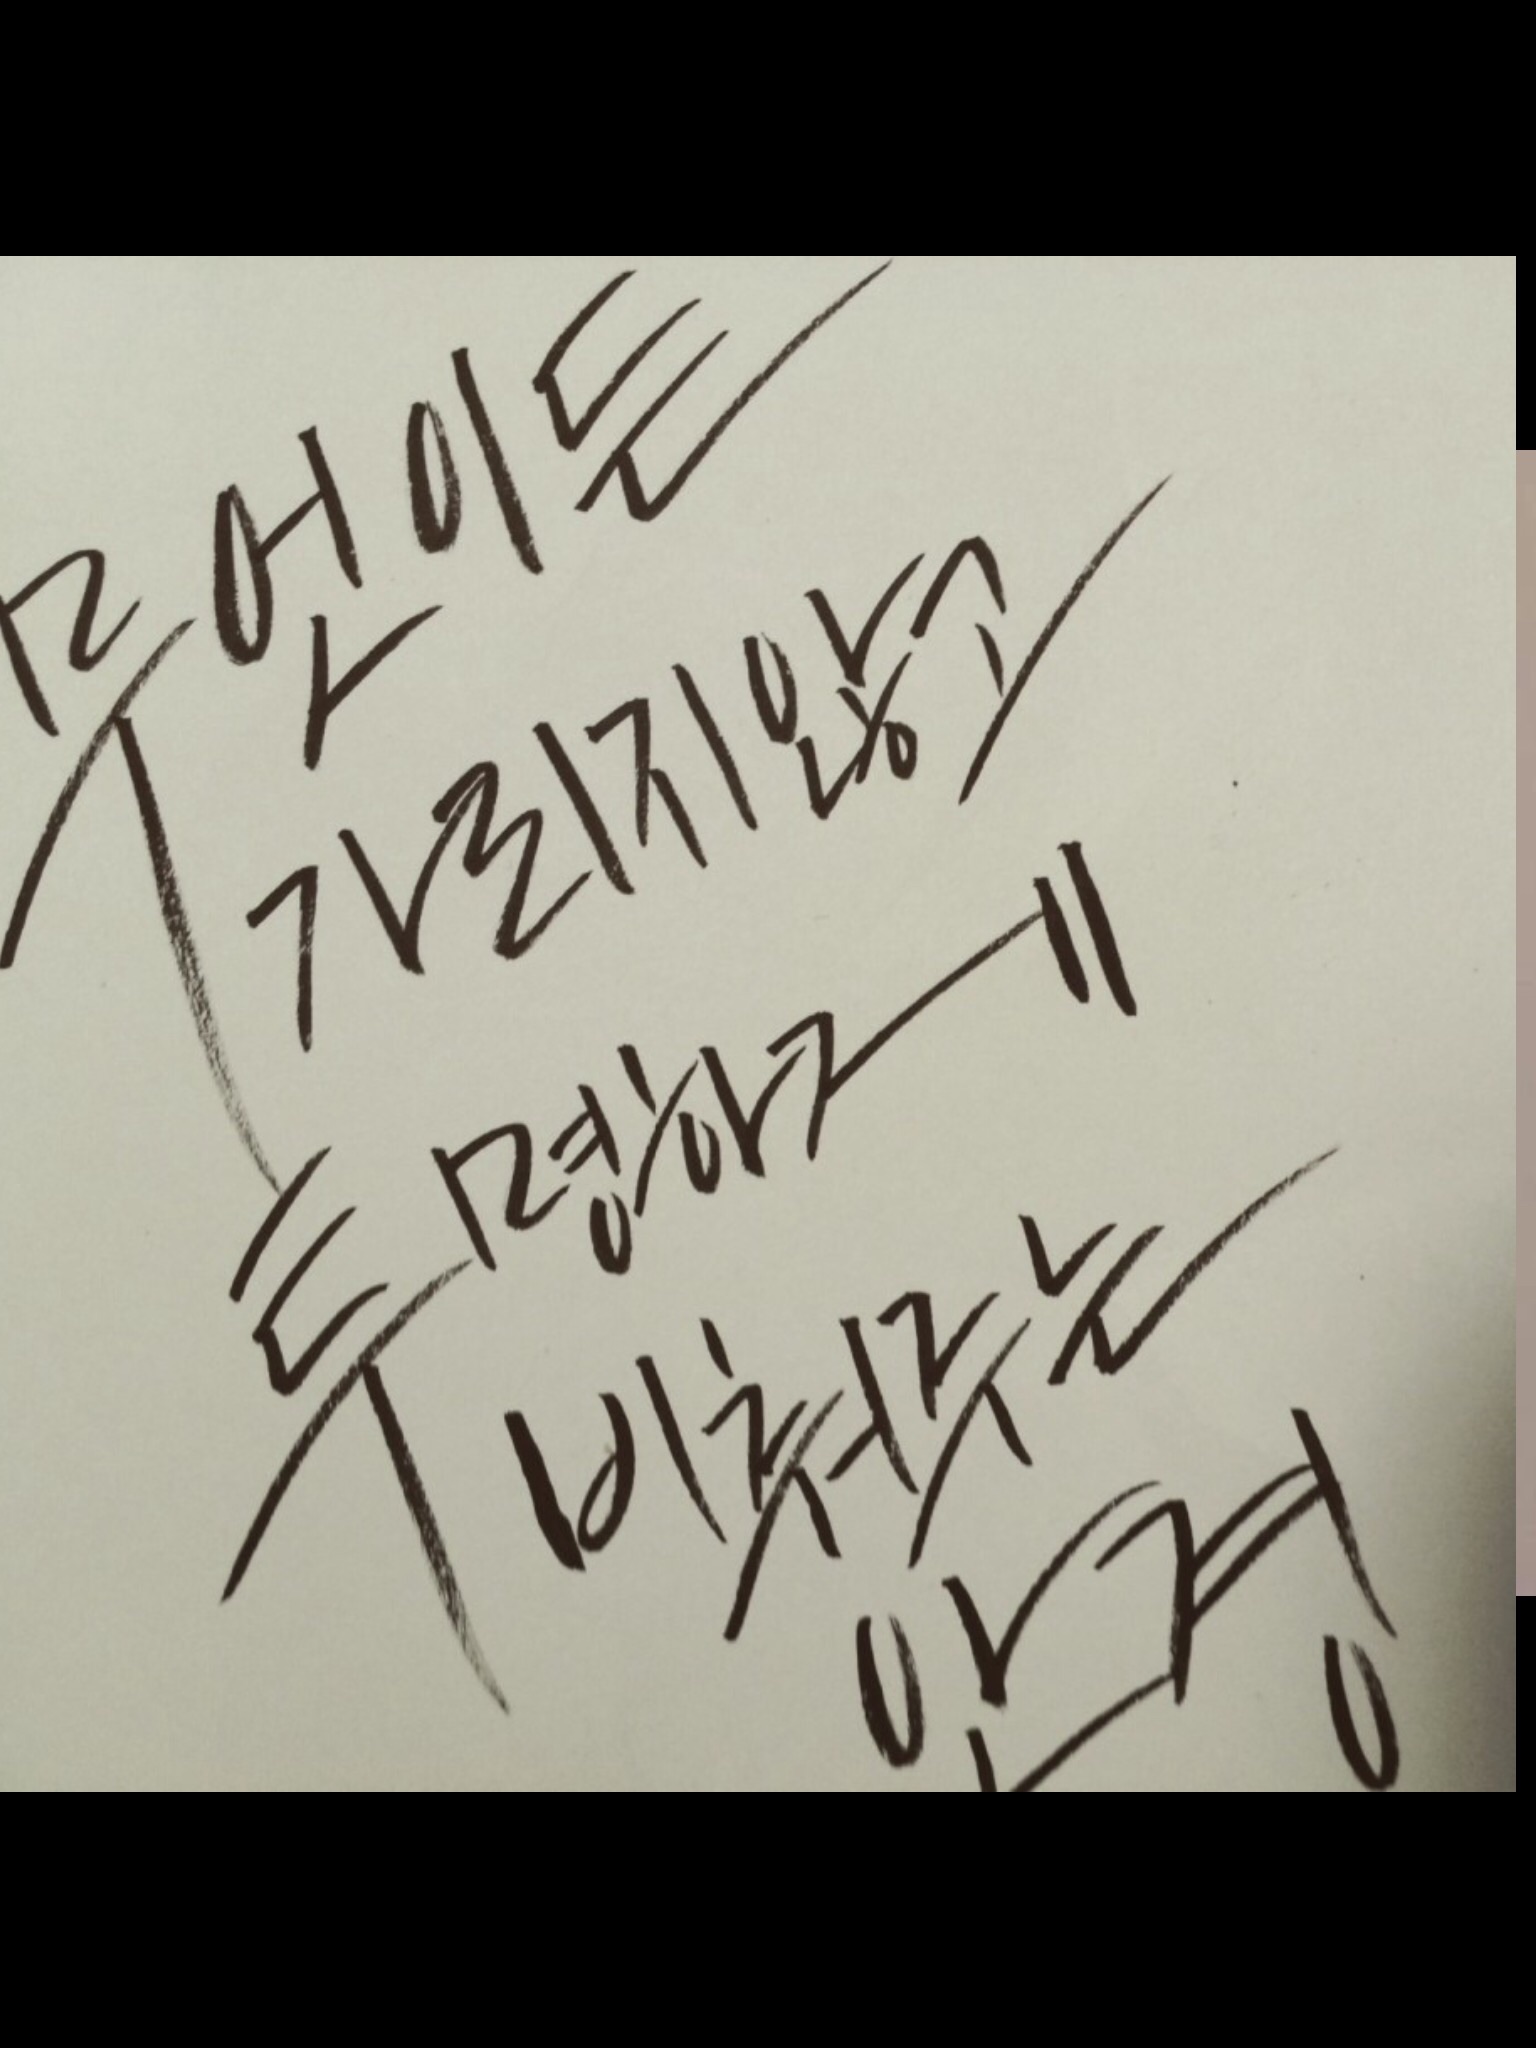 무언이든
가리지않고
투명하게
비춰주는
안경